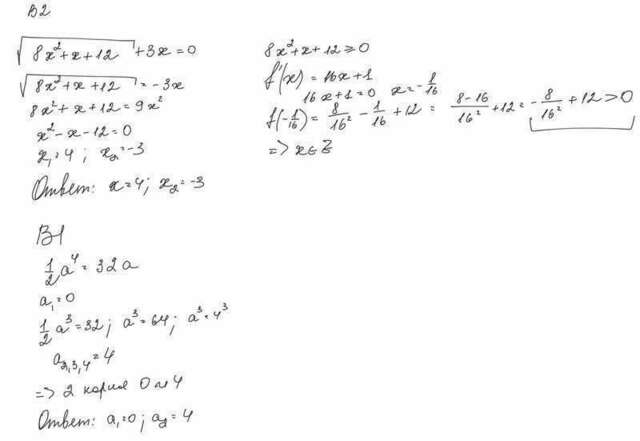 B2
√(8x²+x+12) +3x=0
√(8x²+x+12) = -3x
8x²+x+12=9x²
x²-x-12=0
x₁=4 ; x₂=-3
Ответ: x=4; x₂=-3
8x²+x+12≥0
f'(x) = 16x+1
16x+1=0 x=-1/16
f(-1/16)= 8/16² - 1/16 +12 = (8-16)/16² +12 = -8/16² +12>0
=> x∈Z
B1
1/2 a⁴ = 32a
a₁=0
1/2 a³=32; a³=64; a³=4³
a₂,₃,₄=4
=> 2 корня 0 и 4
Ответ: a₁=0; a₂=4